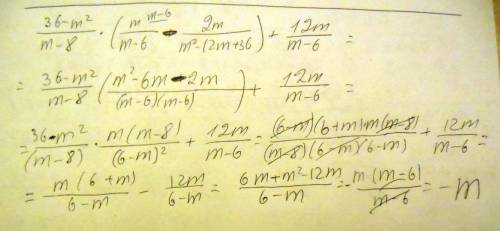 36-m²/m-8 · (m^(m-6)/m-6 - 2m/m²-12m+36) + 12m/m-6 =
= 36-m²/m-8 (m²-6m-2m/(m-6)(m-6)) + 12m/m-6 =
= 36-m²/(m-8) · m(m-8)/(6-m)² + 12m/m-6 = (6-m)(6+m)m(m-8)/(m-8)(6-m)(6-m) + 12m/m-6 =
= m(6+m)/6-m - 12m/6-m = 6m+m²-12m/6-m = -m(m-6)/m-6 = -m